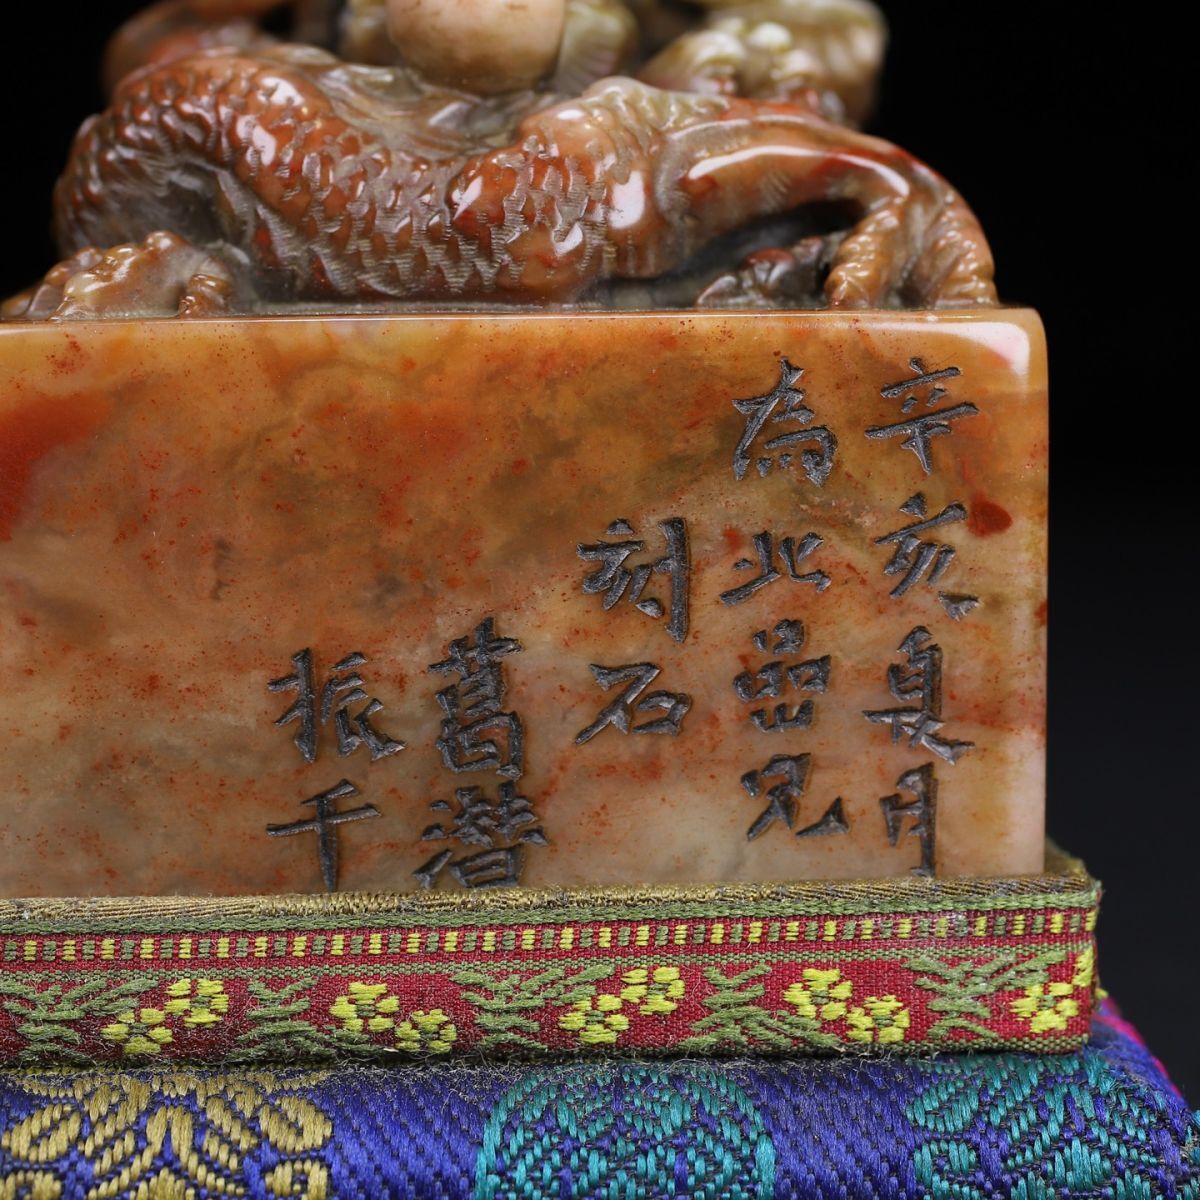 辛亥夏月
為北嵒兄
刻石
葛潛
振千